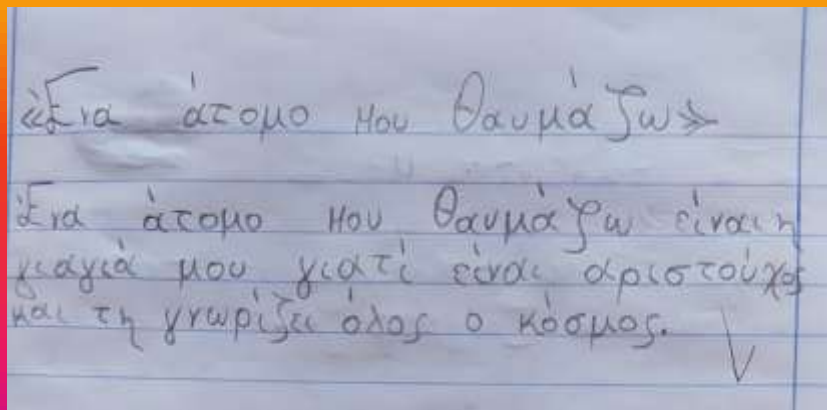 «Ένα άτομο που θαυμάζω»
Ένα άτομο που θαυμάζω είναι η
γιαγιά μου γιατί είναι αριστούχος
και τη γνωρίζει όλος ο κόσμος.